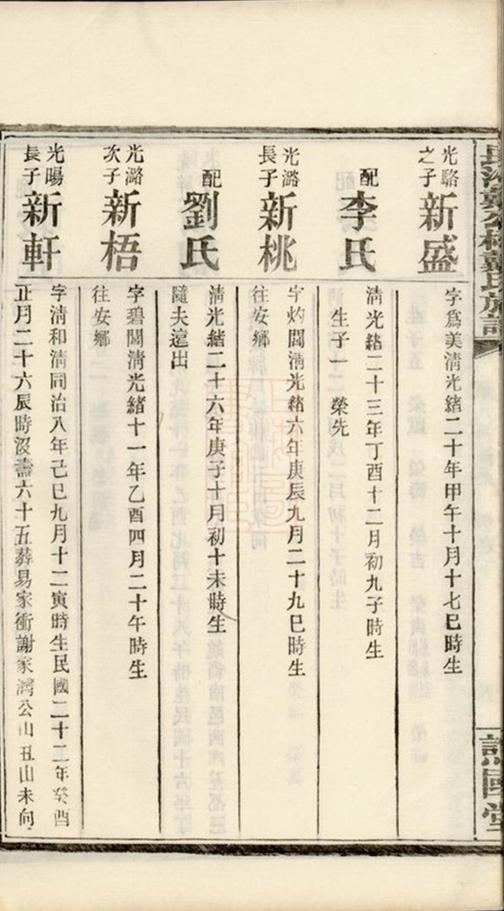 光㬋之子
新盛
字爲美清光緒二十年甲午十月十七巳時生
配
李氏
清光緒二十三年丁酉十二月初九子時生
生子一 榮先
光潞長子
新桃
字灼閣清光緒六年庚辰九月二十九巳時生
往安鄉
配
劉氏
清光緒二十六年庚子十月初十未時生
隨夫遠出
光潞次子
新梧
字碧閣清光緒十一年乙酉四月二十午時生
往安鄉
光暘長子
新軒
字清和清同治八年己巳九月十二寅時生民國二十二年癸酉
正月二十六辰時沒壽六十五葬易家衝謝家灣公山丑山未向